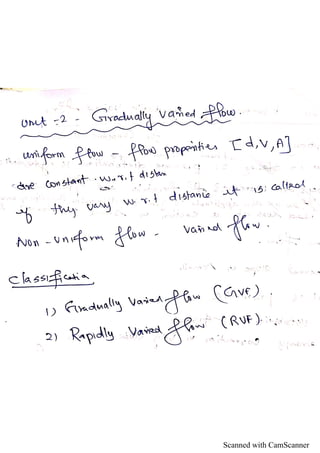 Unit :-2 - Gradually Varied flow.
Uniform flow - flow properties [d,V,A]
are constant w.r.t distan
if they vary w.r.t distance it is called
Non - Uniform flow - varied flow.
Classificatio
1) Gradually Varied flow (GVF).
2) Rapidly Varied flow (RVF).
Scanned with CamScanner